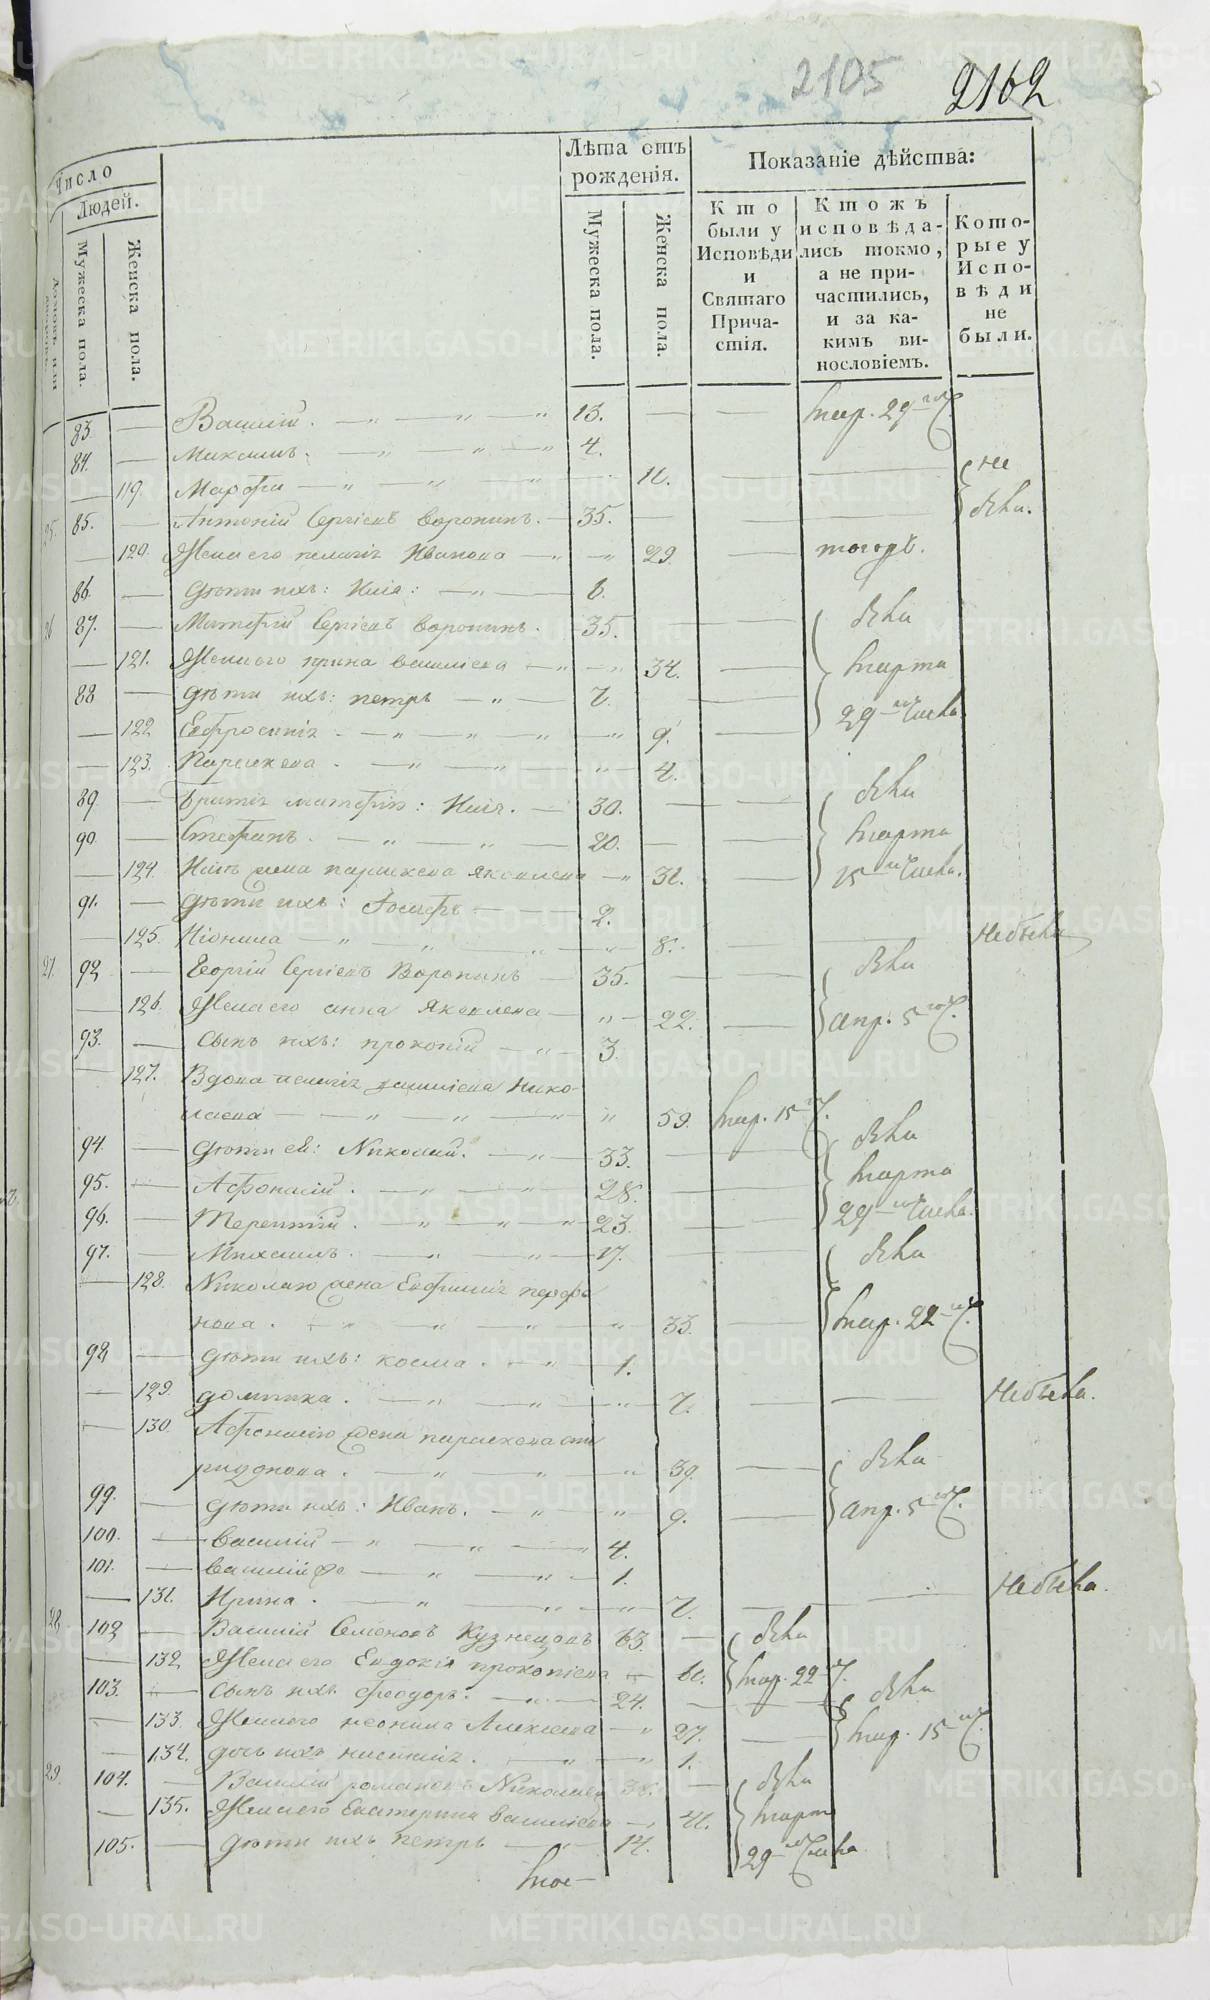 2105 2162
Число
Людей.
Лѣта отъ рожденія.
Показаніе дѣйства:
Мужеска пола.
Женска пола.
Мужеска пола.
Женска пола.
Кто были у Исповѣди и Святаго Причастія.
Ктожъ исповѣдались токмо, а не причастились, и за какимъ винословіемъ.
Которые у Исповѣди не были.
83. — Василій. — 13. — — мар. 29 Ч.
84. — Максимъ. — 4.
— 119. Марфа — — — не
85. — Антоній Сергіевъ Воронинъ. — 35. — — были.
— 120. Жена его пелагія Иванова — 29 — тогожъ.
86. — дѣти ихъ: Илія: —
87. — Матфій Сергіевъ Воронинъ. 35. — — были
— 121. Жена его ирина василіева — 34. — марта
88 — дѣти ихъ: петръ — — 29 Числа.
— 122 Евфросинія. — 9. —
— 123. Параскева. — 4.
89. — братія матфію: Илія. — 30. — — были
90. — Стефанъ. — 20. — — марта
— 124. Иліи жена параскева яковлева — 31. — 15 Числа.
91. — дѣти ихъ: Іосифъ — 2.
— 125. Неонила — 8. — Не были
27. 92 — Георгій Сергіевъ Воронинъ — 35. — — были
— 126. Жена его анна яковлева — 22. — апр. 5 Ч.
93. — Сынъ ихъ: прокопій — 3.
— 127. Вдова пелагія василіева Нико-
лаева — 59. мар. 15 Ч.
94. — дѣти ей: Николай. — 33. — — были
95. — Афонасій. — 28. — — марта
96. — Терентій. — 23. — — 29 Числа.
97. — Михаилъ. — 17. — были
— 128. Николаю жена Евфимія
нова. — 33. — мар. 22 Ч.
98 — дѣти ихъ: косма. — 1.
— 129. домника. — — — Не были.
— 130. Афонасію жена параскева
— 39. — были
99. — дѣти ихъ: Иванъ. — 9. — апр. 5 Ч.
100. — Василій — 4.
101. — василій же — 1.
— 131. Ирина. — — Не были.
28. 102 — Василій Семеновъ Кузнецовъ 63. — были
— 132 Жена его Евдокія прокопіева — мар. 22 Ч.
103. — Сынъ ихъ феодоръ. — 24. — — были
— 133. Жена его неонила Алексіева — 27. — мар. 15 Ч.
— 134. дочь ихъ — 1.
29. 104. — Василій романовъ Николаевъ 38. — были
— 135. Жена его Екатерина василіева — 41. марта
105. — дѣти ихъ петръ — 14. 29 Числа